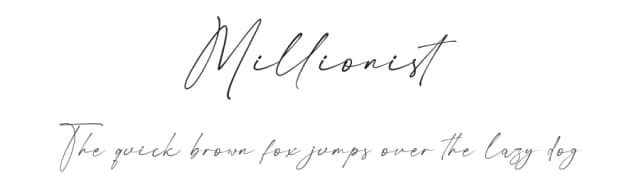 Millionist
The quick brown fox jumps over the lazy dog